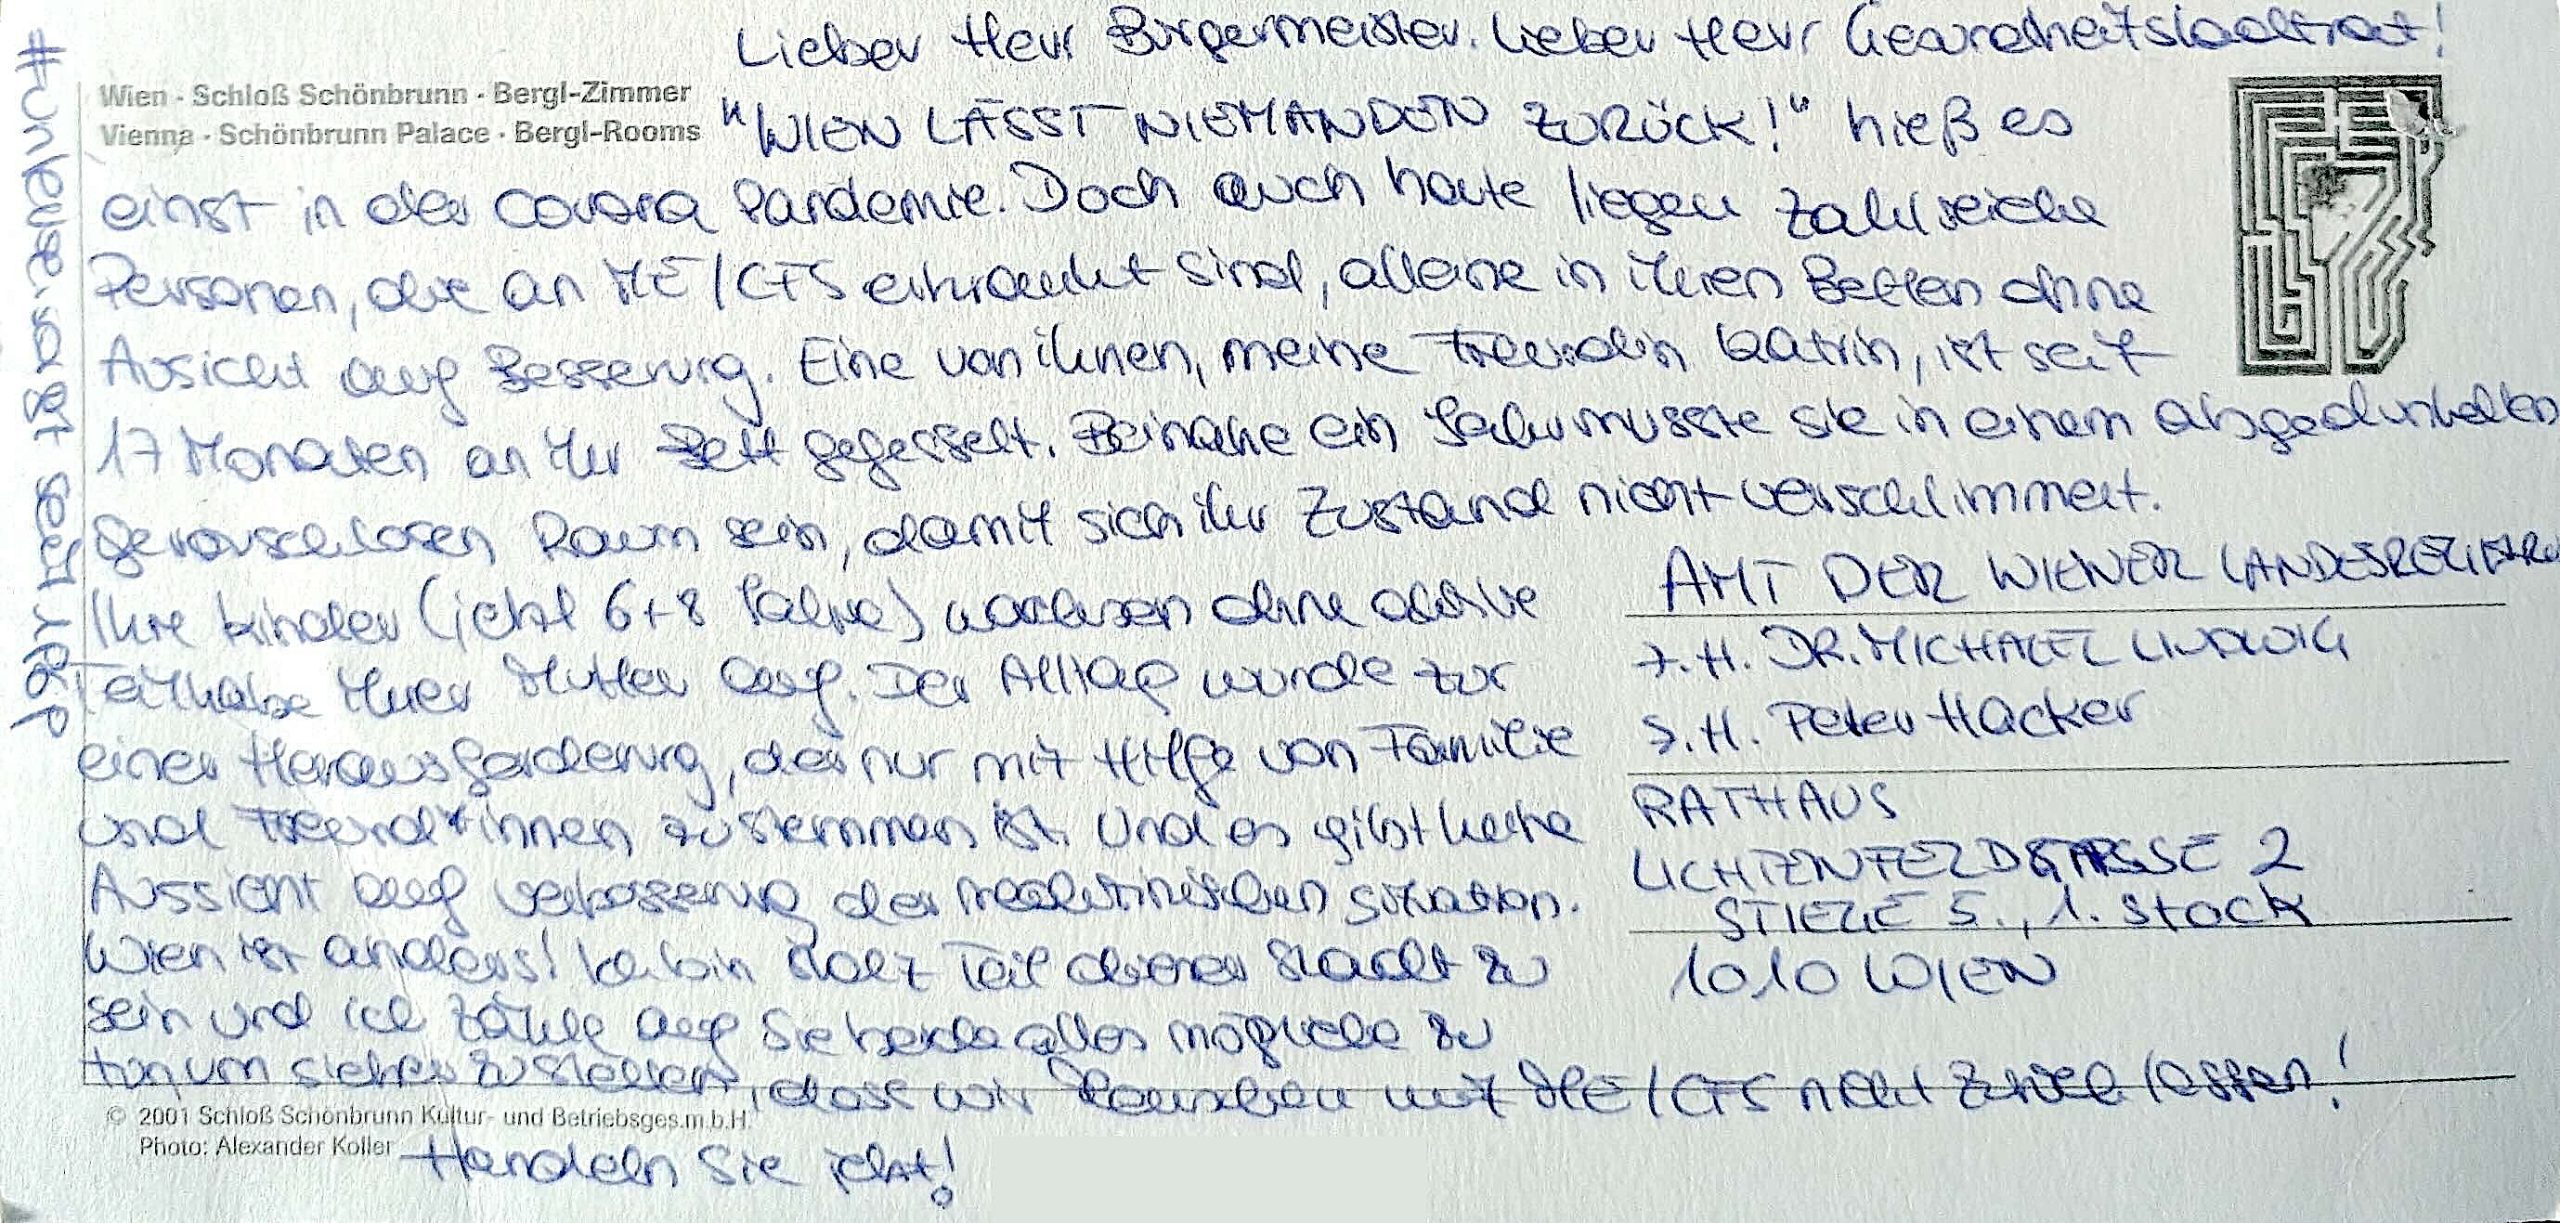 Lieber Herr Bürgermeister. Lieber Herr Gesundheitsstadtrat!
Wien · Schloß Schönbrunn · Bergl-Zimmer
Vienna · Schönbrunn Palace · Bergl-Rooms
"WIEN LÄSST NIEMANDEN ZURÜCK!" hieß es
einst in der Corona Pandemie. Doch auch heute liegen zahlreiche
Personen, die an ME/CFS erkrankt sind, alleine in ihren Betten ohne
Aussicht auf Besserung. Eine von ihnen, meine Freundin Katrin, ist seit
17 Monaten an ihr Bett gefesselt. Beinahe ein Jahr musste sie in einem abgedunkelten
geräuschlosen Raum sein, damit sich ihr Zustand nicht verschlimmert.
Ihre Kinder (jetzt 6+8 Jahre) wachsen ohne aktive
Teilhabe ihrer Mutter auf. Der Alltag wurde zur
einer Herausforderung, der nur mit Hilfe von Familie
und Freund*innen zu stemmen ist. Und es gibt keine
Aussicht auf Verbesserung der medizinischen Situation.
Wien ist anders! Ich bin stolz Teil dieser Stadt zu
sein und ich zähle auf Sie beide alles mögliche zu
tun um sicher zu stellen, dass wir Menschen mit ME/CFS nicht zurück lassen!
© 2001 Schloß Schönbrunn Kultur- und Betriebsges.m.b.H.
Photo: Alexander Koller
Handeln Sie jetzt!
AMT DER WIENER LANDESREGIERU
z.H. DR. MICHAEL LUDWIG
z.H. Peter Hacker
RATHAUS
LICHTENFELDGASSE 2
STIEGE 5., 1. Stock
1010 WIEN